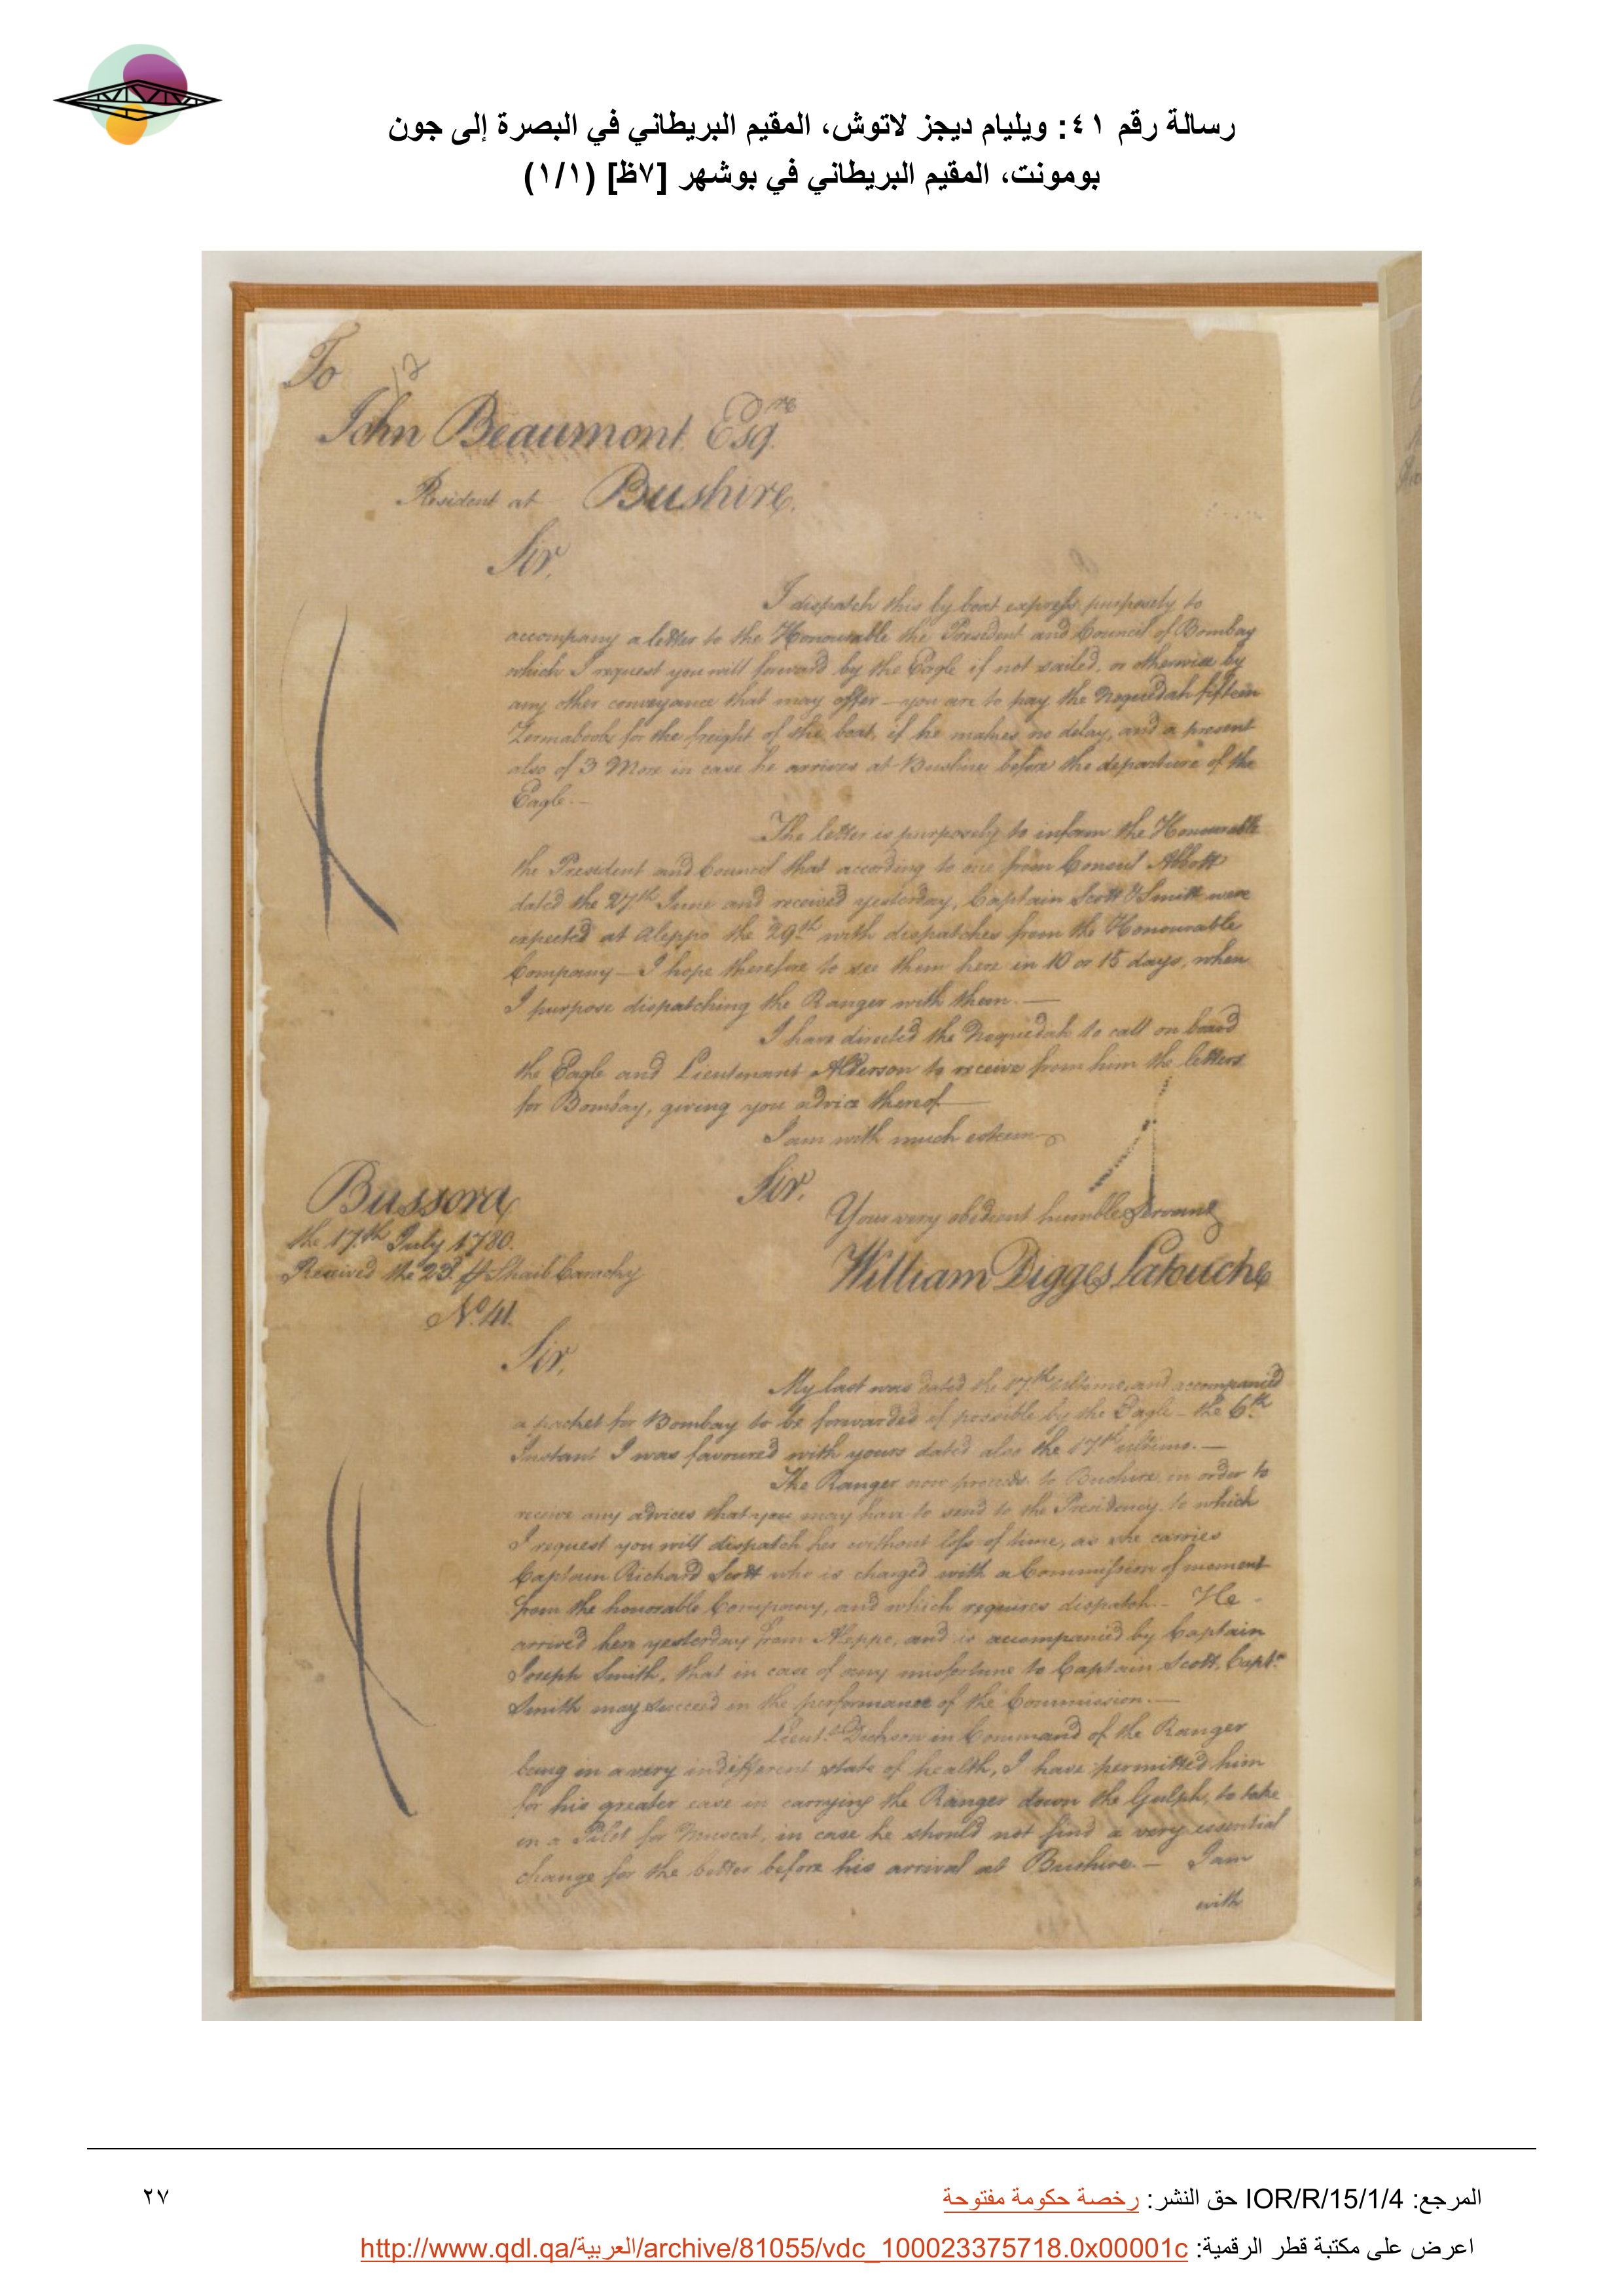 رسالة رقم ٤١: ويليام ديجز لاتوش، المقيم البريطاني في البصرة إلى جون
بومونت، المقيم البريطاني في بوشهر [٧ظ] (١/١)
To
12
John Beaumont Esqre
Resident at Bushire.
Sir,
I dispatch this by boat express purposely to
accompany a letter to the Honourable the President and Council of Bombay
which I request you will forward by the Eagle if not sailed, or otherwise by
any other conveyance that may offer — you are to pay the Noquedah fifteen
Zermaboobs for the freight of the boat, if he makes no delay, and a present
also of 3 More in case he arrives at Bushire before the departure of the
Eagle. —
The letter is purposely to inform the Honourable
the President and Council that according to one from Consul Abbott
dated the 27th June and received yesterday, Captain Scott & Smith were
expected at Aleppo the 29th with dispatches from the Honourable
Company — I hope therefore to see them here in 10 or 15 days, when
I purpose dispatching the Ranger with them. —
I have directed the Noquedah to call on board
the Eagle and Lieutenant Alderson to receive from him the letters
for Bombay, giving you advice thereof —
I am with much esteem
Sir.
Your very obedient humble Servant
William Digges Latouche
Bussora
the 17th July 1780.
Received the 23d Shaib Carachy
No. 41.
Sir,
My last was dated the 17th ultimo, and accompanied
a packet for Bombay to be forwarded if possible by the Eagle — the 6th
Instant I was favoured with yours dated also the 17th ultimo. —
The Ranger now proceeds to Bushire in order to
receive any advices that you may have to send to the Presidency, to which
I request you will dispatch her without loss of time, as she carries
Captain Richard Scott who is charged with a Commission of moment
from the honorable Company, and which requires dispatch. — He
arrived here yesterday from Aleppo, and is accompanied by Captain
Joseph Smith, that in case of any misfortune to Captain Scott, Captn
Smith may succeed in the performance of the Commission. —
Lieut. Dickson in Command of the Ranger
being in a very indifferent state of health, I have permitted him
for his greater ease in carrying the Ranger down the Gulph, to take
in a Pilot for Muscat, in case he should not find a very essential
change for the better before his arrival at Bushire. — I am
with
المرجع: IOR/R/15/1/4 حق النشر: رخصة حكومة مفتوحة
٢٧
اعرض على مكتبة قطر الرقمية: http://www.qdl.qa/العربية/archive/81055/vdc_100023375718.0x00001c